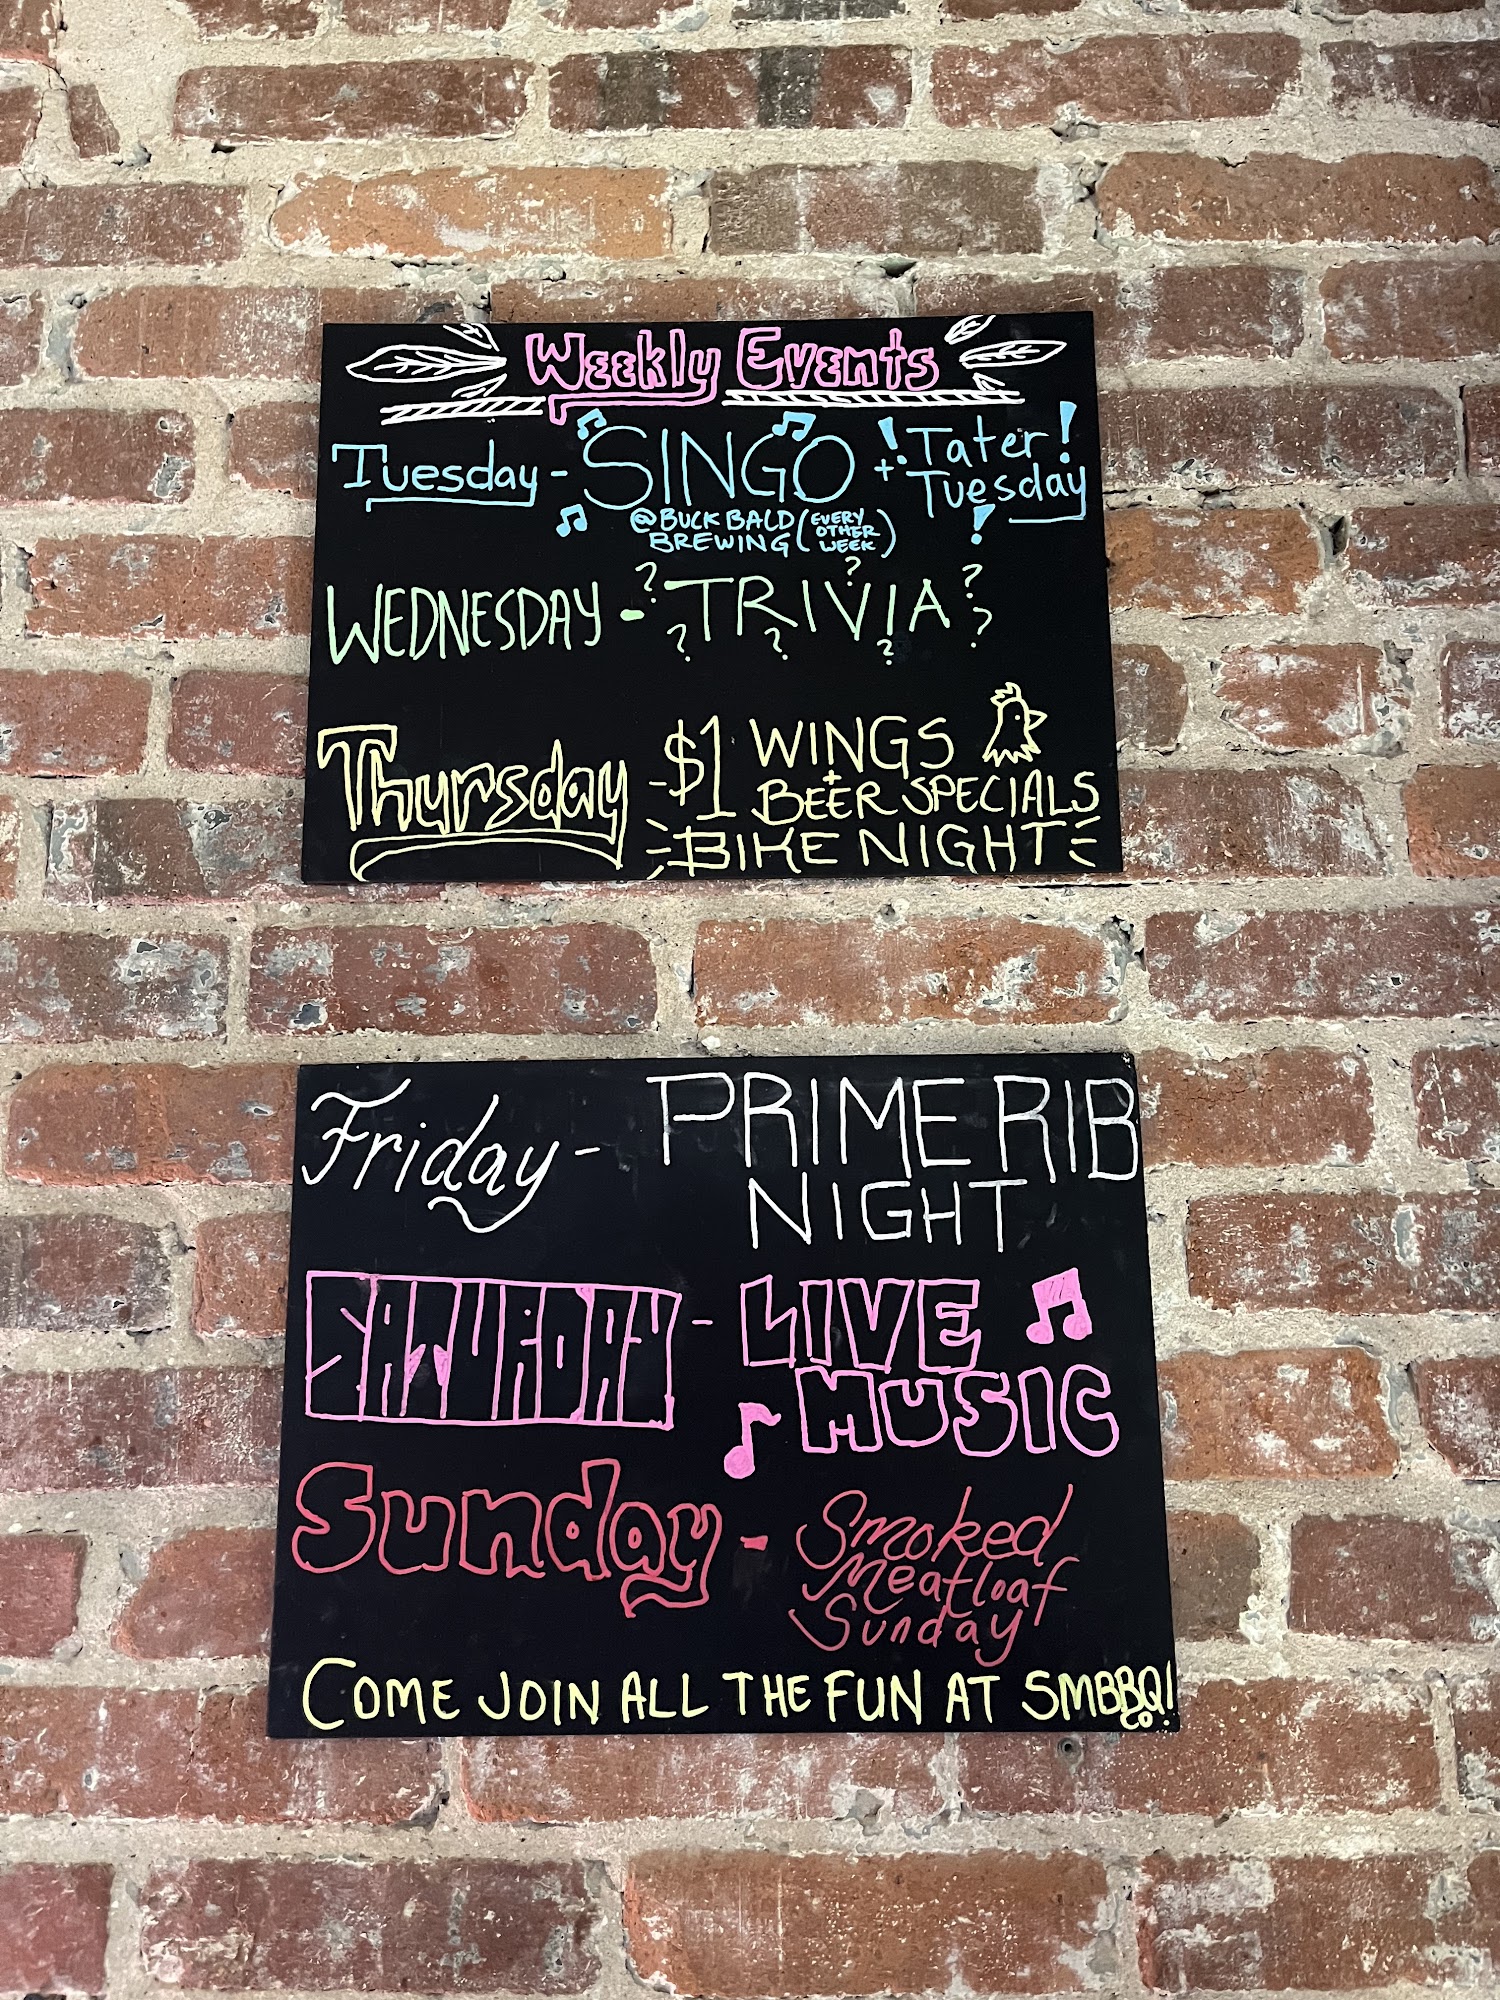 Weekly Events
Tuesday - SINGO + ! Tater !
Tuesday !
@ BUCK BALD
BREWING (EVERY
OTHER
WEEK)
WEDNESDAY - ? TRIVIA ?
Thursday - $1 WINGS
+
BEER SPECIALS
BIKE NIGHT
Friday - PRIME RIB
NIGHT
SATURDAY - LIVE
MUSIC
Sunday - Smoked
Meatloaf
Sunday
COME JOIN ALL THE FUN AT SMBBQ!
CO